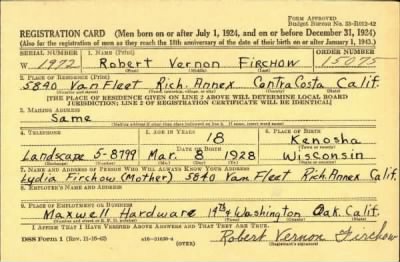 FORM APPROVED
Budget Bureau No. 33-R012-42
REGISTRATION CARD (Men born on or after July 1, 1924, and on or before December 31, 1924)
(Also for the registration of men as they reach the 18th anniversary of the date of their birth on or after January 1, 1943.)
SERIAL NUMBER 1. NAME (Print) ORDER NUMBER
W 1972 Robert Vernon FIRCHOW 15075
(First) (Middle) (Last)
2. PLACE OF RESIDENCE (Print)
5840 Van Fleet Rich. Annex Contra Costa Calif.
(Number and street) (Town, township, village, or city) (County) (State)
[THE PLACE OF RESIDENCE GIVEN ON LINE 2 ABOVE WILL DETERMINE LOCAL BOARD
JURISDICTION; LINE 2 OF REGISTRATION CERTIFICATE WILL BE IDENTICAL]
3. MAILING ADDRESS
Same
(Mailing address if other than place indicated on line 2. If same, insert word same)
4. TELEPHONE 5. AGE IN YEARS 6. PLACE OF BIRTH
18 Kenosha
DATE OF BIRTH (Town or county)
Landscape 5-8799 Mar. 8 1928 Wisconsin
(Exchange) (Number) (Mo.) (Day) (Yr.) (State or country)
7. NAME AND ADDRESS OF PERSON WHO WILL ALWAYS KNOW YOUR ADDRESS
Lydia Firchow (Mother) 5840 Van Fleet Rich. Annex Calif.
8. EMPLOYER'S NAME AND ADDRESS
9. PLACE OF EMPLOYMENT OR BUSINESS
Maxwell Hardware 14th & Washington Oak. Calif.
(Number and street or R. F. D. number) (Town) (County) (State)
I AFFIRM THAT I HAVE VERIFIED ABOVE ANSWERS AND THAT THEY ARE TRUE.
DSS Form 1 (Rev. 11-16-42) 16-21630-4 (OVER) Robert Vernon Firchow
(Registrant's signature)